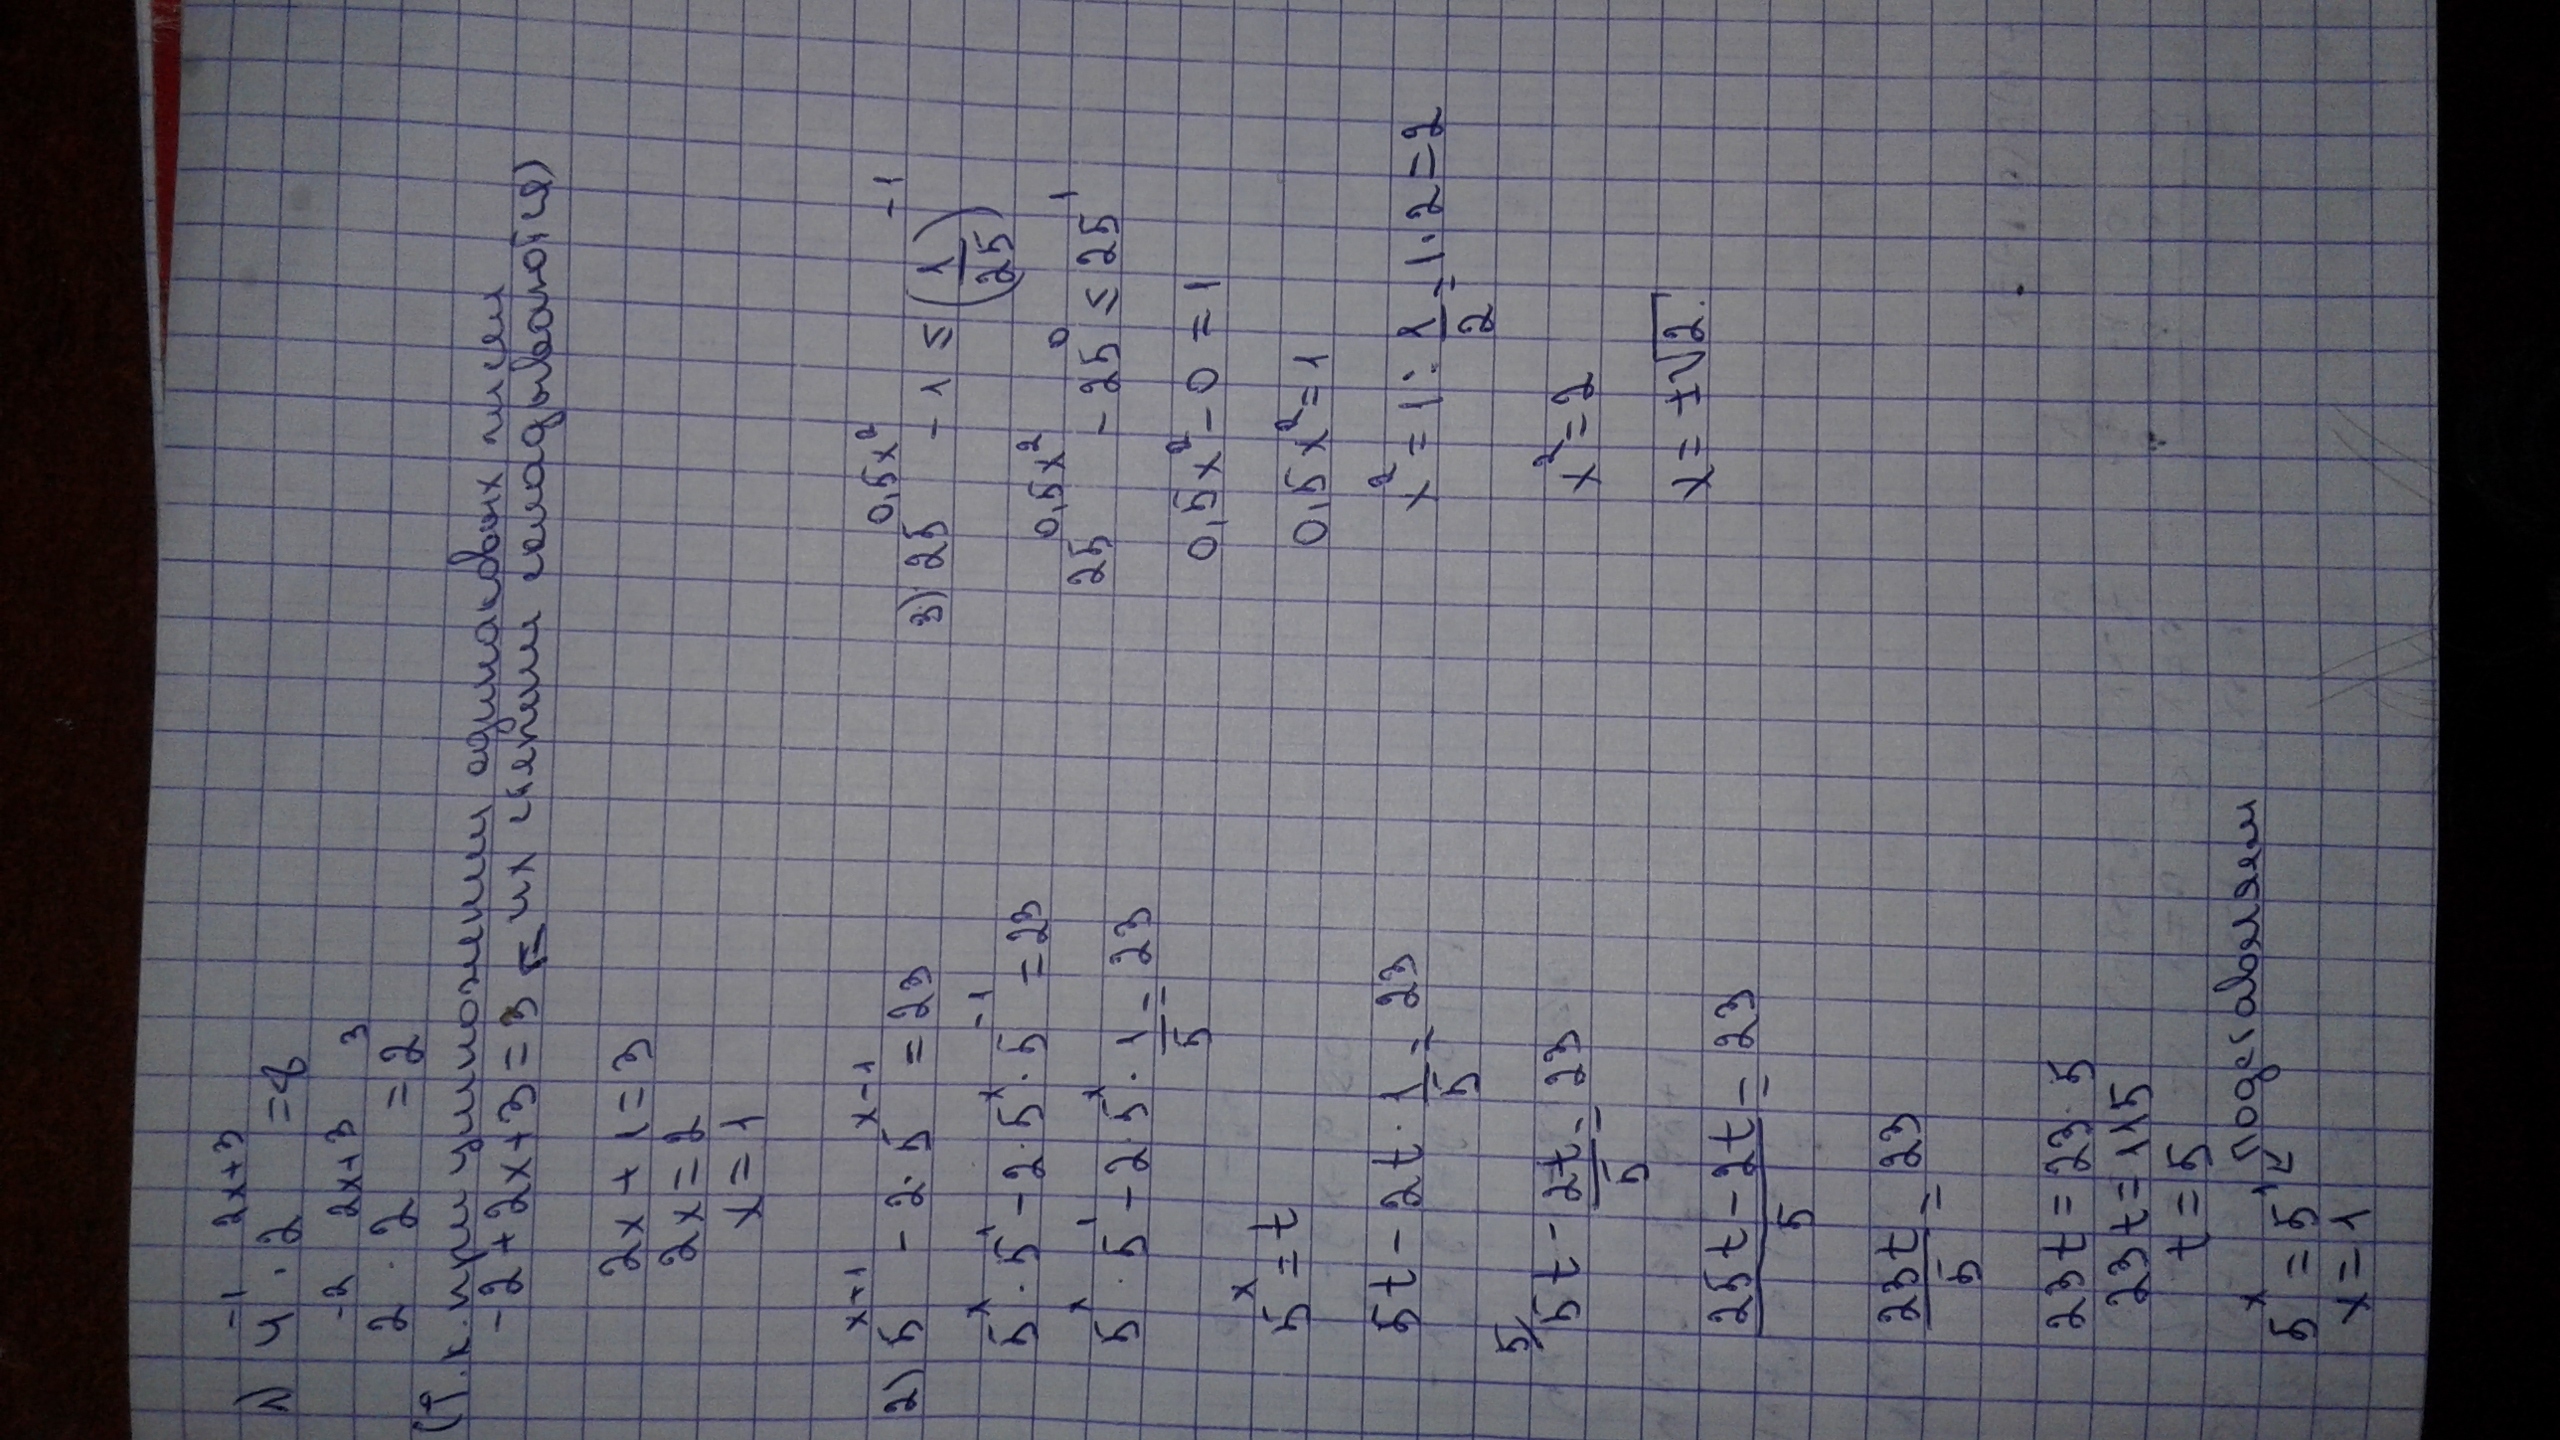 1) 4^{-1} · 2^{2x+3} = 8
2^{-2} · 2^{2x+3} = 2^3
(т.к. при умножении одинаковых чисел
-2+2x+3=3 их степени складываются)
2x+1=3
2x=2
x=1
2) 5^{x+1} - 2·5^{x-1} = 23
5^x · 5^1 - 2·5^x · 5^{-1} = 23
5^x · 5^1 - 2·5^x · \frac{1}{5} = 23
5^x = t
5t - 2t · \frac{1}{5} = 23
5/ 5t - \frac{2t}{5} = 23
\frac{25t-2t}{5} = 23
\frac{23t}{5} = 23
23t = 23·5
23t = 115
t = 5
5^x = 5^1 подставляем
x=1
3) 25^{0,5x^2} - 1 ≤ (\frac{1}{25})^{-1}
25^{0,5x^2} - 25^0 ≤ 25^1
0,5x^2 - 0 = 1
0,5x^2 = 1
x^2 = 1 : \frac{1}{2} = 1·2=2
x^2=2
x = ±√2.